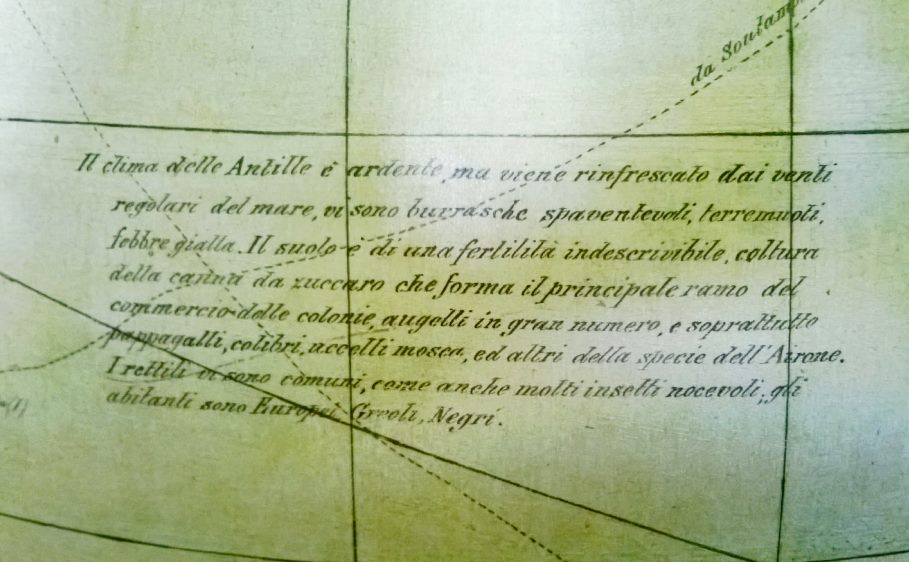 da Soutam
Il clima delle Antille è ardente, ma viene rinfrescato dai venti
regolari del mare, vi sono burrasche spaventevoli, terremuoti,
febbre gialla. Il suolo è di una fertilità indescrivibile, coltura
della canna da zuccaro che forma il principale ramo del
commercio delle colonie, augelli in gran numero, e soprattutto
pappagalli, colibri, uccelli mosca, ed altri della specie dell'Airone.
I rettili vi sono comuni, come anche molti insetti nocevoli, gli
abitanti sono Europei, Creoli, Negri.